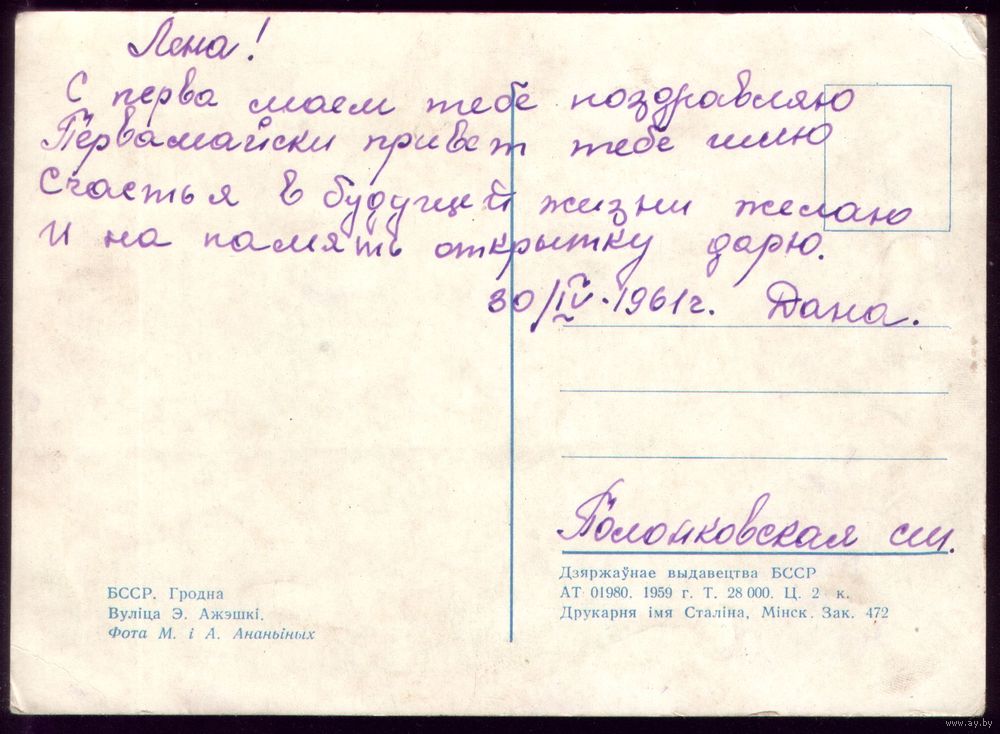 Лена!
С перва маем тебе поздравляю
Первамайски привет тебе шлю
Счастья в будущей жизни желаю
И на память открытку дарю.
30/IV-1961г. Дана.
Полонковская сш.
БССР. Гродна
Вуліца Э. Ажэшкі.
Фота М. і А. Ананьіных
Дзяржаўнае выдавецтва БССР
АТ 01980. 1959 г. Т. 28 000. Ц. 2 к.
Друкарня імя Сталіна, Мінск. Зак. 472
www.ay.by